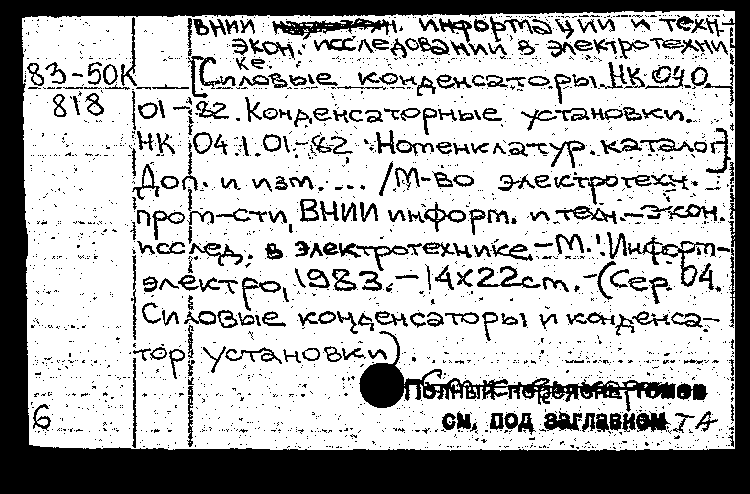 ВНИИ информации и техн-
экон. исследований в электротехни
ке.
83-50К [Силовые конденсаторы. НК 04.0.
818 01-82. Конденсаторные установки.
НК 04.1.01-82. Номенклатур. каталог]
Доп. и изм.... /М-во электротехн.
пром-сти, ВНИИ информ. и техн.-экон.
исслед. в электротехнике.-М.: Информ-
электро, 1983.-14х22cm.-(Сер. 04.
Силовые конденсаторы и конденса-
тор. установки).
Полный перечень томов
6 см. под заглавием ТА